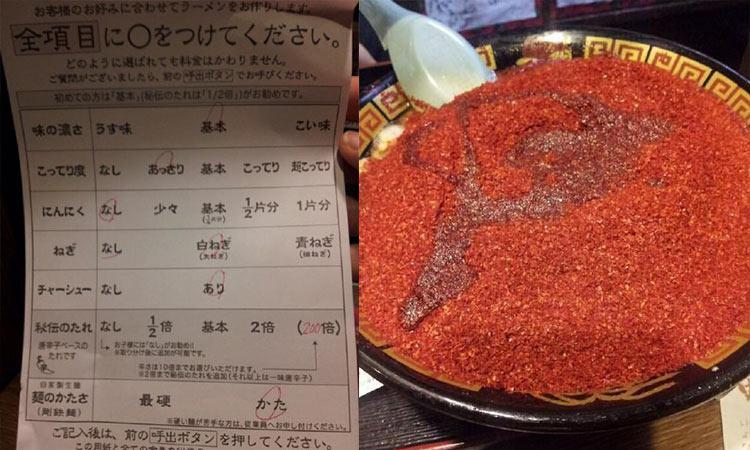 お客様のお好みに合わせてラーメンをお作りします。
全項目に○をつけてください。
どのように選ばれても料金はかわりません。
ご質問がございましたら、前の呼出ボタンでお呼びください。
初めての方は「基本」(秘伝のたれは「1/2倍」)がお勧めです。
味の濃さ うす味 基本 こい味
こってり度 なし あっさり 基本 こってり 超こってり
にんにく なし 少々 基本 1/2片分 1片分
ねぎ なし 白ねぎ 青ねぎ
チャーシュー なし あり
秘伝のたれ なし 1/2倍 基本 2倍 (200倍)
唐辛子ベースの
たれです
お子様には「なし」がお勧め!!
※取り分け後に追加が可能です。
辛さは10倍までお選びいただけます。
※2倍まで秘伝のたれを追加(それ以上は一味唐辛子)
自家製生麺
麺のかたさ 最硬 かた
(剛鉄麺)
※硬い麺が苦手な方は、従業員へお申し付けください。
ご記入後は、前の呼出ボタンを押してください。